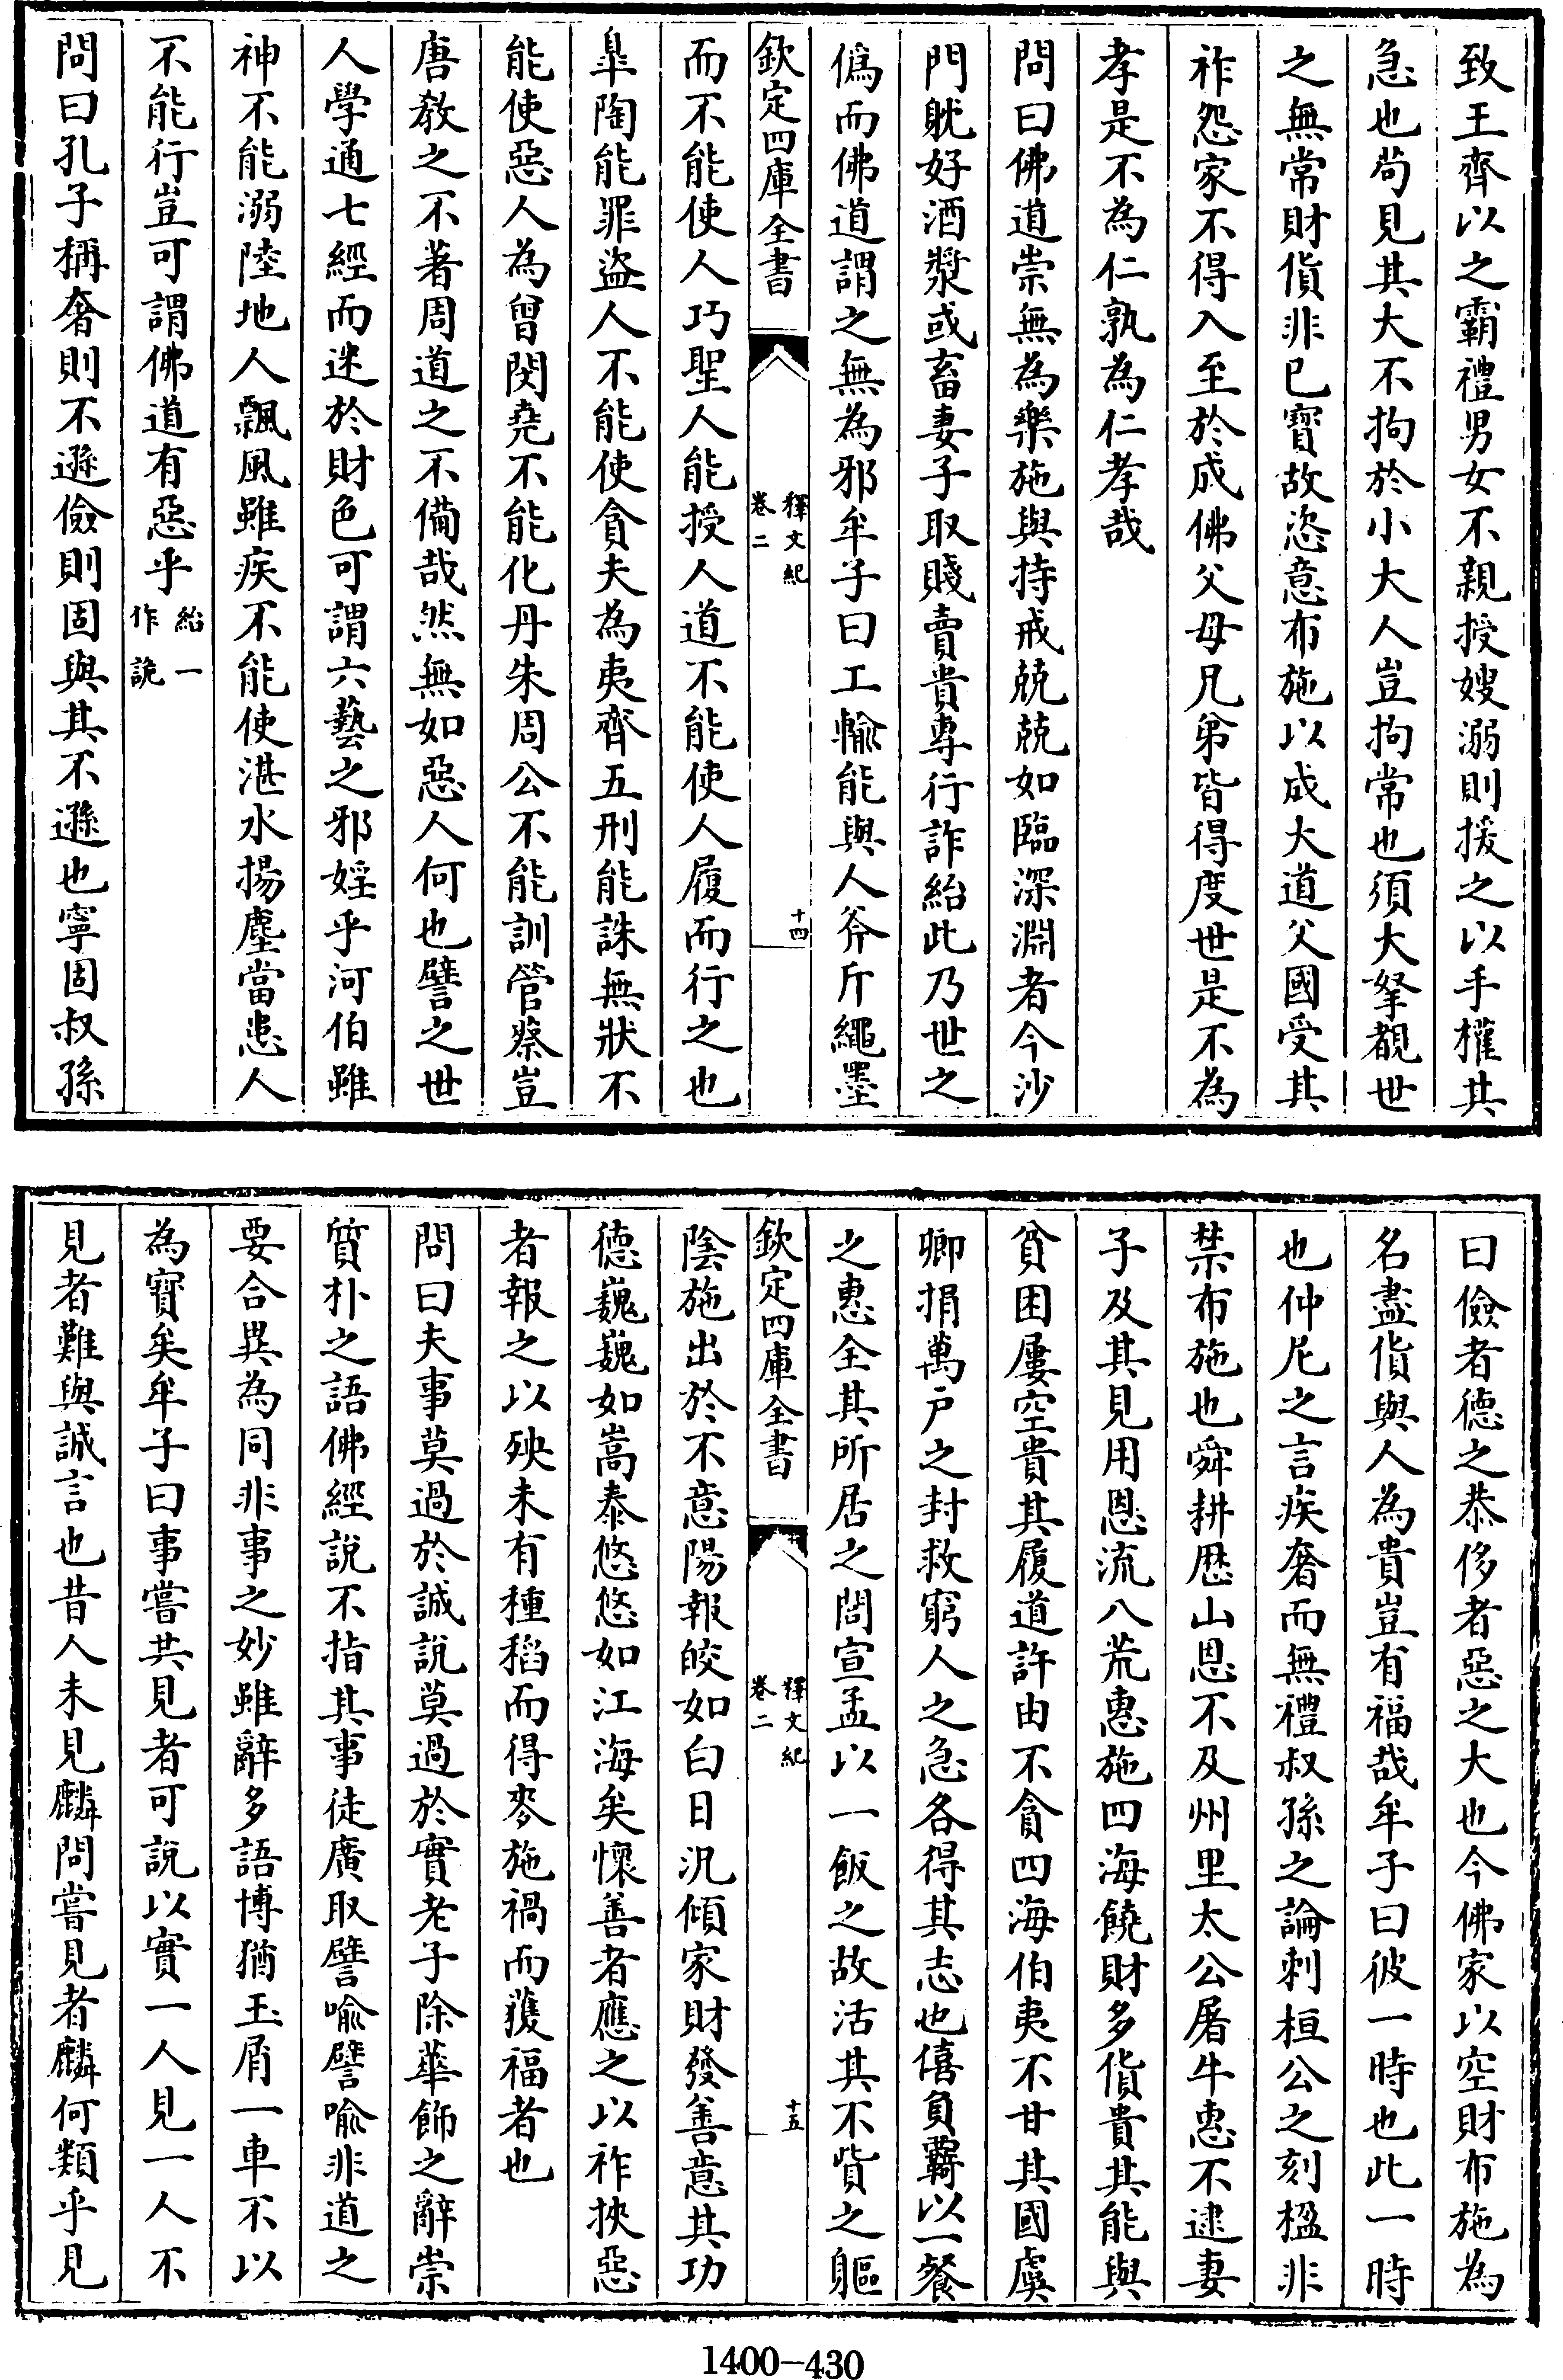 致王齊以之霸禮男女不親授嫂溺則援之以手權其
急也茍見其大不拘於小大人豈拘常也須大拏覩世
之無常財貨非已寳故恣意布施以成大道父國受其
祚怨家不得入至於成佛父母兄弟皆得度世是不為
孝是不為仁孰為仁孝哉
問曰佛道崇無為樂施與持戒兢兢如臨深淵者今沙
門躭好酒漿或畜妻子取賤賣貴專行詐紿此乃世之
偽而佛道謂之無為邪牟子曰工輸能與人斧斤繩墨
欽定四庫全書
釋文紀
卷二
十四
而不能使人巧聖人能授人道不能使人履而行之也
臯陶能罪盜人不能使貪夫為夷齊五刑能誅無狀不
能使惡人為曾閔堯不能化丹朱周公不能訓管蔡豈
唐教之不著周道之不備哉然無如惡人何也譬之世
人學通七經而迷於財色可謂六藝之邪婬乎河伯雖
神不能溺陸地人飄風雖疾不能使湛水揚塵當患人
不能行豈可謂佛道有惡乎紿一作詭
問曰孔子稱奢則不遜儉則固與其不遜也寧固叔孫
曰儉者德之恭侈者惡之大也今佛家以空財布施為
名盡貨與人為貴豈有福哉牟子曰彼一時也此一時
也仲尼之言疾奢而無禮叔孫之論刺桓公之刻楹非
禁布施也舜耕歴山恩不及州里太公屠牛惠不逮妻
子及其見用恩流八荒惠施四海饒財多貨貴其能與
貧困屢空貴其履道許由不貪四海伯夷不甘其國虞
卿捐萬户之封救窮人之急各得其志也僖負羈以一餐
之惠全其所居之閭宣孟以一飯之故活其不貲之軀
欽定四庫全書
釋文紀
卷二
十五
陰施出於不意陽報皎如白日況傾家財發善意其功
德巍巍如嵩泰悠悠如江海矣懷善者應之以祚挾惡
者報之以殃未有種稻而得麥施禍而獲福者也
問曰夫事莫過於誠說莫過於實老子除華飾之辭崇
質朴之語佛經說不指其事徒廣取譬喻譬喻非道之
要合異為同非事之妙雖辭多語博猶玉屑一車不以
為寳矣牟子曰事嘗共見者可說以實一人見一人不
見者難與誠言也昔人未見麟問嘗見者麟何類乎見
1400-430